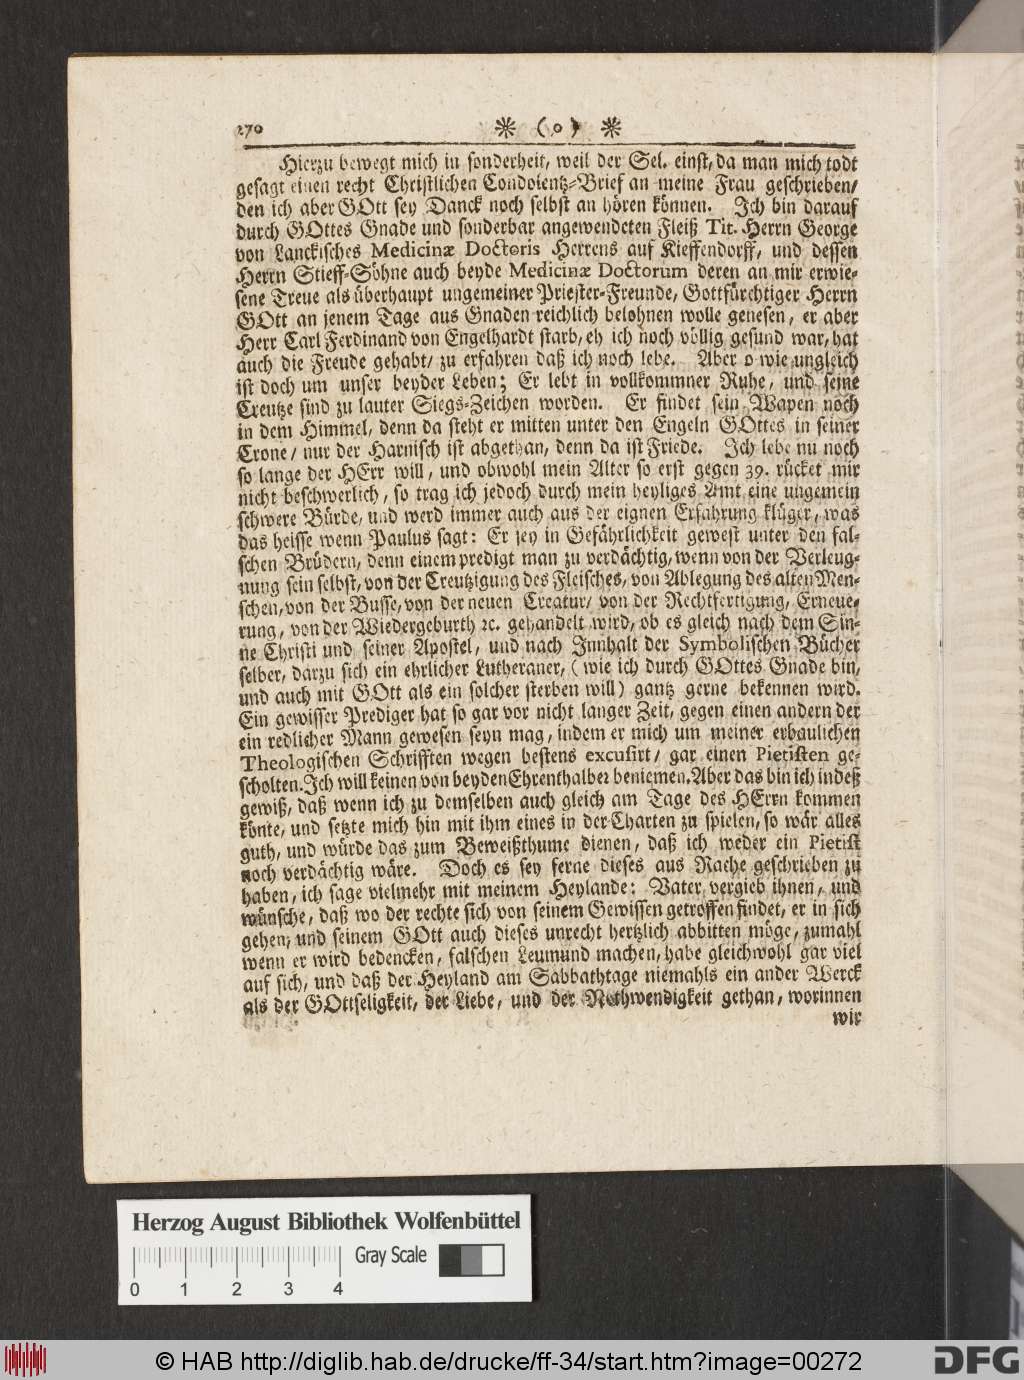 270 ❋ (o) ❋
Hierzu bewegt mich in sonderheit, weil der Sel. einst, da man mich todt
gesagt einen recht Christlichen Condolentz-Brief an meine Frau geschrieben/
den ich aber GOtt sey Danck noch selbst an hören können. Ich bin darauf
durch GOttes Gnade und sonderbar angewendeten Fleiß Tit. Herrn George
von Lanckisches Medicinæ Doctoris Herrens auf Kieffendorff, und dessen
Herrn Stieff-Söhne auch beyde Medicinæ Doctorum deren an mir erwie-
sene Treue als überhaupt ungemeiner Priester-Freunde, Gottfürchtiger Herrn
GOtt an jenem Tage aus Gnaden reichlich belohnen wolle genesen, er aber
Herr Carl Ferdinand von Engelhardt starb, eh ich noch völlig gesund war, hat
auch die Freude gehabt/ zu erfahren daß ich noch lebe. Aber o wie ungleich
ist doch um unser beyder Leben; Er lebt in vollkommner Ruhe, und seine
Creutze sind zu lauter Siegs-Zeichen worden. Er findet sein Wapen noch
in dem Himmel, denn da steht er mitten unter den Engeln GOttes in seiner
Crone/ nur der Harnisch ist abgethan, denn da ist Friede. Ich lebe nu noch
so lange der HErr will, und obwohl mein Alter so erst gegen 39. rücket mir
nicht beschwerlich, so trag ich jedoch durch mein heyliges Amt eine ungemein
schwere Bürde, und werd immer auch aus der eignen Erfahrung klüger, was
das heisse wenn Paulus sagt: Er sey in Gefährlichkeit gewest unter den fal-
schen Brüdern, denn einem predigt man zu verdächtig, wenn von der Verleug-
nung sein selbst, von der Creutzigung des Fleisches, von Ablegung des alten Men-
schen, von der Busse, von der neuen Creatur/ von der Rechtfertigung, Erneue-
rung, von der Wiedergeburth ꝛc. gehandelt wird, ob es gleich nach dem Sin-
ne Christi und seiner Apostel, und nach Innhalt der Symbolischen Bücher
selber, darzu sich ein ehrlicher Lutheraner, (wie ich durch GOttes Gnade bin,
und auch mit GOtt als ein solcher sterben will) gantz gerne bekennen wird.
Ein gewisser Prediger hat so gar vor nicht langer Zeit, gegen einen andern der
ein redlicher Mann gewesen seyn mag, indem er mich um meiner erbaulichen
Theologischen Schrifften wegen bestens excusirt/ gar einen Pietisten ge-
scholten. Ich will keinen von beyden Ehrenthalber beniemen. Aber das bin ich indeß
gewiß, daß wenn ich zu demselben auch gleich am Tage des HErrn kommen
könte, und setzte mich hin mit ihm eines in der Charten zu spielen, so wär alles
guth, und würde das zum Beweißthume dienen, daß ich weder ein Pietist
noch verdächtig wäre. Doch es sey ferne dieses aus Rache geschrieben zu
haben, ich sage vielmehr mit meinem Heylande: Vater vergieb ihnen, und
wünsche, daß wo der rechte sich von seinem Gewissen getroffen findet, er in sich
gehen, und seinem GOtt auch dieses unrecht hertzlich abbitten möge, zumahl
wenn er wird bedencken, falschen Leumund machen, habe gleichwohl gar viel
auf sich, und daß der Heyland am Sabbathtage niemahls ein ander Werck
als der GOttseligkeit, der Liebe, und der Nothwendigkeit gethan, worinnen
wir
Herzog August Bibliothek Wolfenbüttel
Gray Scale
0 1 2 3 4
© HAB http://diglib.hab.de/drucke/ff-34/start.htm?image=00272 DFG